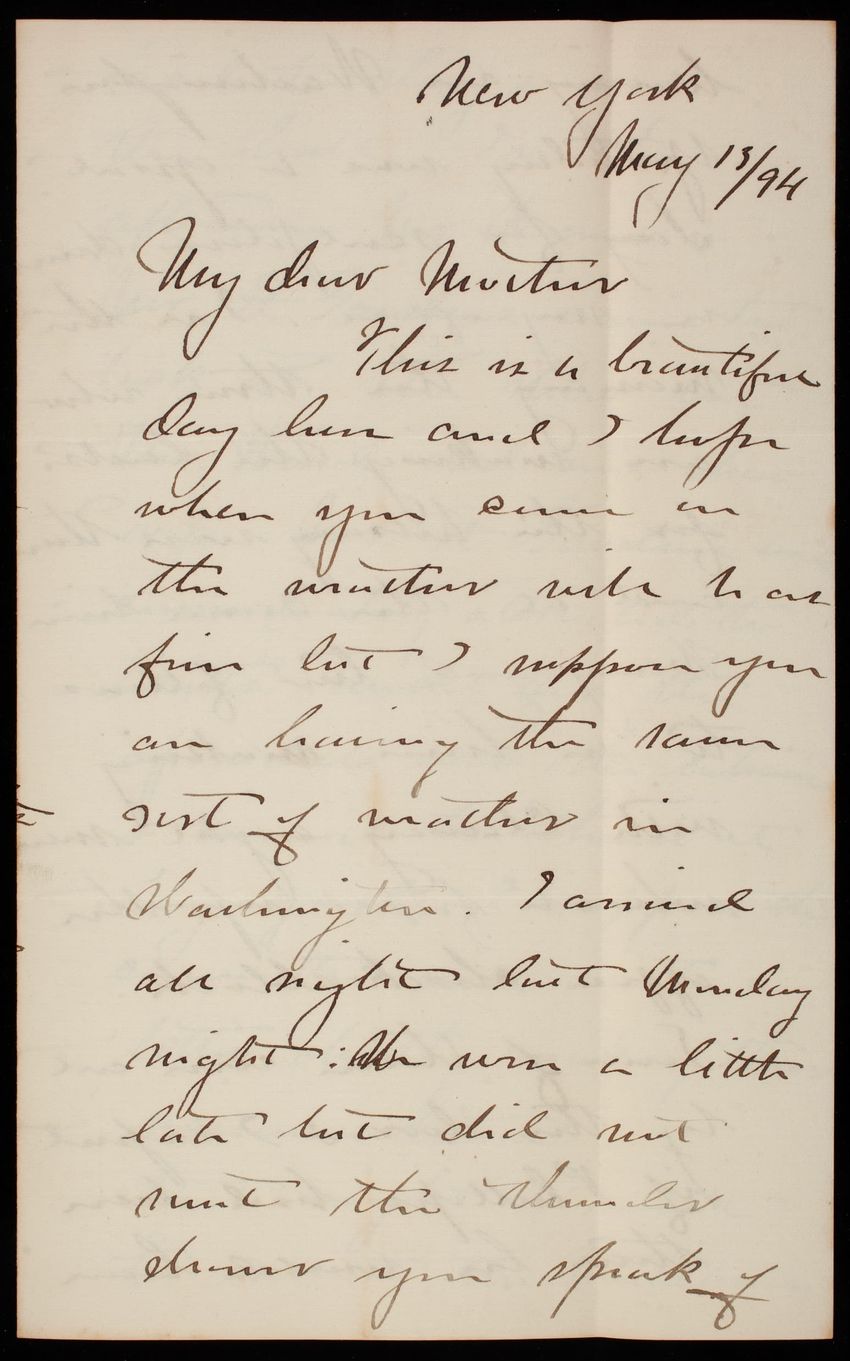 New York
May 13/94
My dear Mother
This is a beautiful
day here and I hope
when you come on
the weather will be as
fine but I suppose you
are having the same
sort of weather in
Washington. I arrived
all right last Monday
night: We were a little
late but did not
meet the thunder
shower you speak of